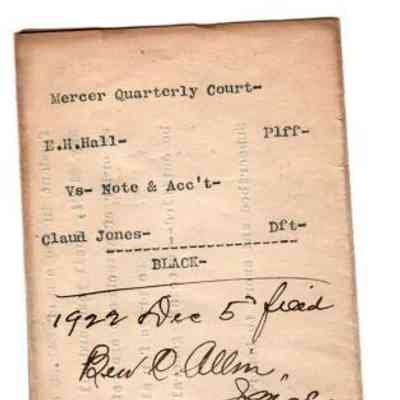 Mercer Quarterly Court-
E.H.Hall- Plff-
Vs- Note & Acc't-
Claud Jones- Dft-
BLACK-
1922 Dec 5 filed
Ben C. Allin